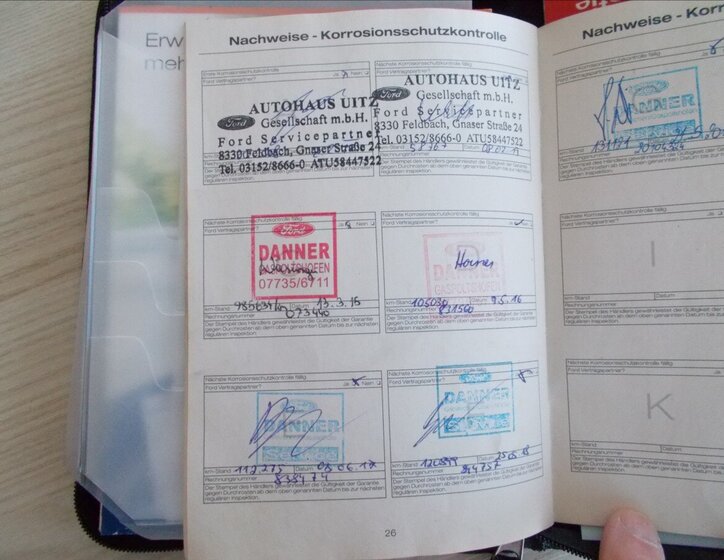 Erw
meh
Nachweise - Korrosionsschutzkontrolle
Erste Korrosionsschutzkontrolle
Ford Vertragspartner? Ja Nein
AUTOHAUS UITZ
Ford Gesellschaft m.b.H.
Ford Servicepartner
8330 Feldbach, Gnaser Straße 24
Tel. 03152/8666-0 ATU58447522
Der Stempel des Händlers gewährleistet die Gültigkeit der Garantie
gegen Durchrosten ab dem oben genannten Datum bis zur nächsten
regulären Inspektion.
Nächste Korrosionsschutzkontrolle fällig
Ford Vertragspartner?
AUTOHAUS UITZ
Ford Gesellschaft m.b.H.
Ford Servicepartner
8330 Feldbach, Gnaser Straße 24
Tel. 03152/8666-0 ATU58447522
Der Stempel des Händlers gewährleistet die Gültigkeit der Garantie
gegen Durchrosten ab dem oben genannten Datum bis zur nächsten
regulären Inspektion.
Nächste Korrosionsschutzkontrolle fällig
Ford Vertragspartner? Ja Nein
Ford
DANNER
GASPOLTSHOFEN
07735/6711
km-Stand Datum 13.3.15
Rechnungsnummer 073440
Der Stempel des Händlers gewährleistet die Gültigkeit der Garantie
gegen Durchrosten ab dem oben genannten Datum bis zur nächsten
regulären Inspektion.
Nächste Korrosionsschutzkontrolle fällig
Ford Vertragspartner? Ja Nein
DANNER
GASPOLTSHOFEN
km-Stand 105030 Datum 9.5.16
Rechnungsnummer 831560
Der Stempel des Händlers gewährleistet die Gültigkeit der Garantie
gegen Durchrosten ab dem oben genannten Datum bis zur nächsten
regulären Inspektion.
Nächste Korrosionsschutzkontrolle fällig
Ford Vertragspartner? Ja x Nein
DANNER
km-Stand 112275 Datum 08.06.17
Rechnungsnummer 838474
Der Stempel des Händlers gewährleistet die Gültigkeit der Garantie
gegen Durchrosten ab dem oben genannten Datum bis zur nächsten
regulären Inspektion.
Nächste Korrosionsschutzkontrolle fällig
Ford Vertragspartner?
DANNER
km-Stand Datum
Rechnungsnummer 844757
Der Stempel des Händlers gewährleistet die Gültigkeit der Garantie
gegen Durchrosten ab dem oben genannten Datum bis zur nächsten
regulären Inspektion.
26
Nachweise - Korr
Nächste Korrosionsschutzkontrolle fällig
Ford Vertragspartner?
DANNER
Der Stempel des Händlers gewährleistet die Gültigkeit der Garantie
gegen Durchrosten ab dem oben genannten Datum bis zur nächsten
regulären Inspektion.
Nächste Korrosionsschutzkontrolle fällig
Ford Vertragspartner?
I
km-Stand Datum
Rechnungsnummer
Der Stempel des Händlers gewährleistet die Gültigkeit der Garantie
gegen Durchrosten ab dem oben genannten Datum bis zur nächsten
regulären Inspektion.
Nächste Korrosionsschutzkontrolle fällig
Ford Vertragspartner?
K
km-Stand Datum
Rechnungsnummer
Der Stempel des Händlers gewährleistet die
gegen Durchrosten ab dem oben genannten
regulären Inspektion.